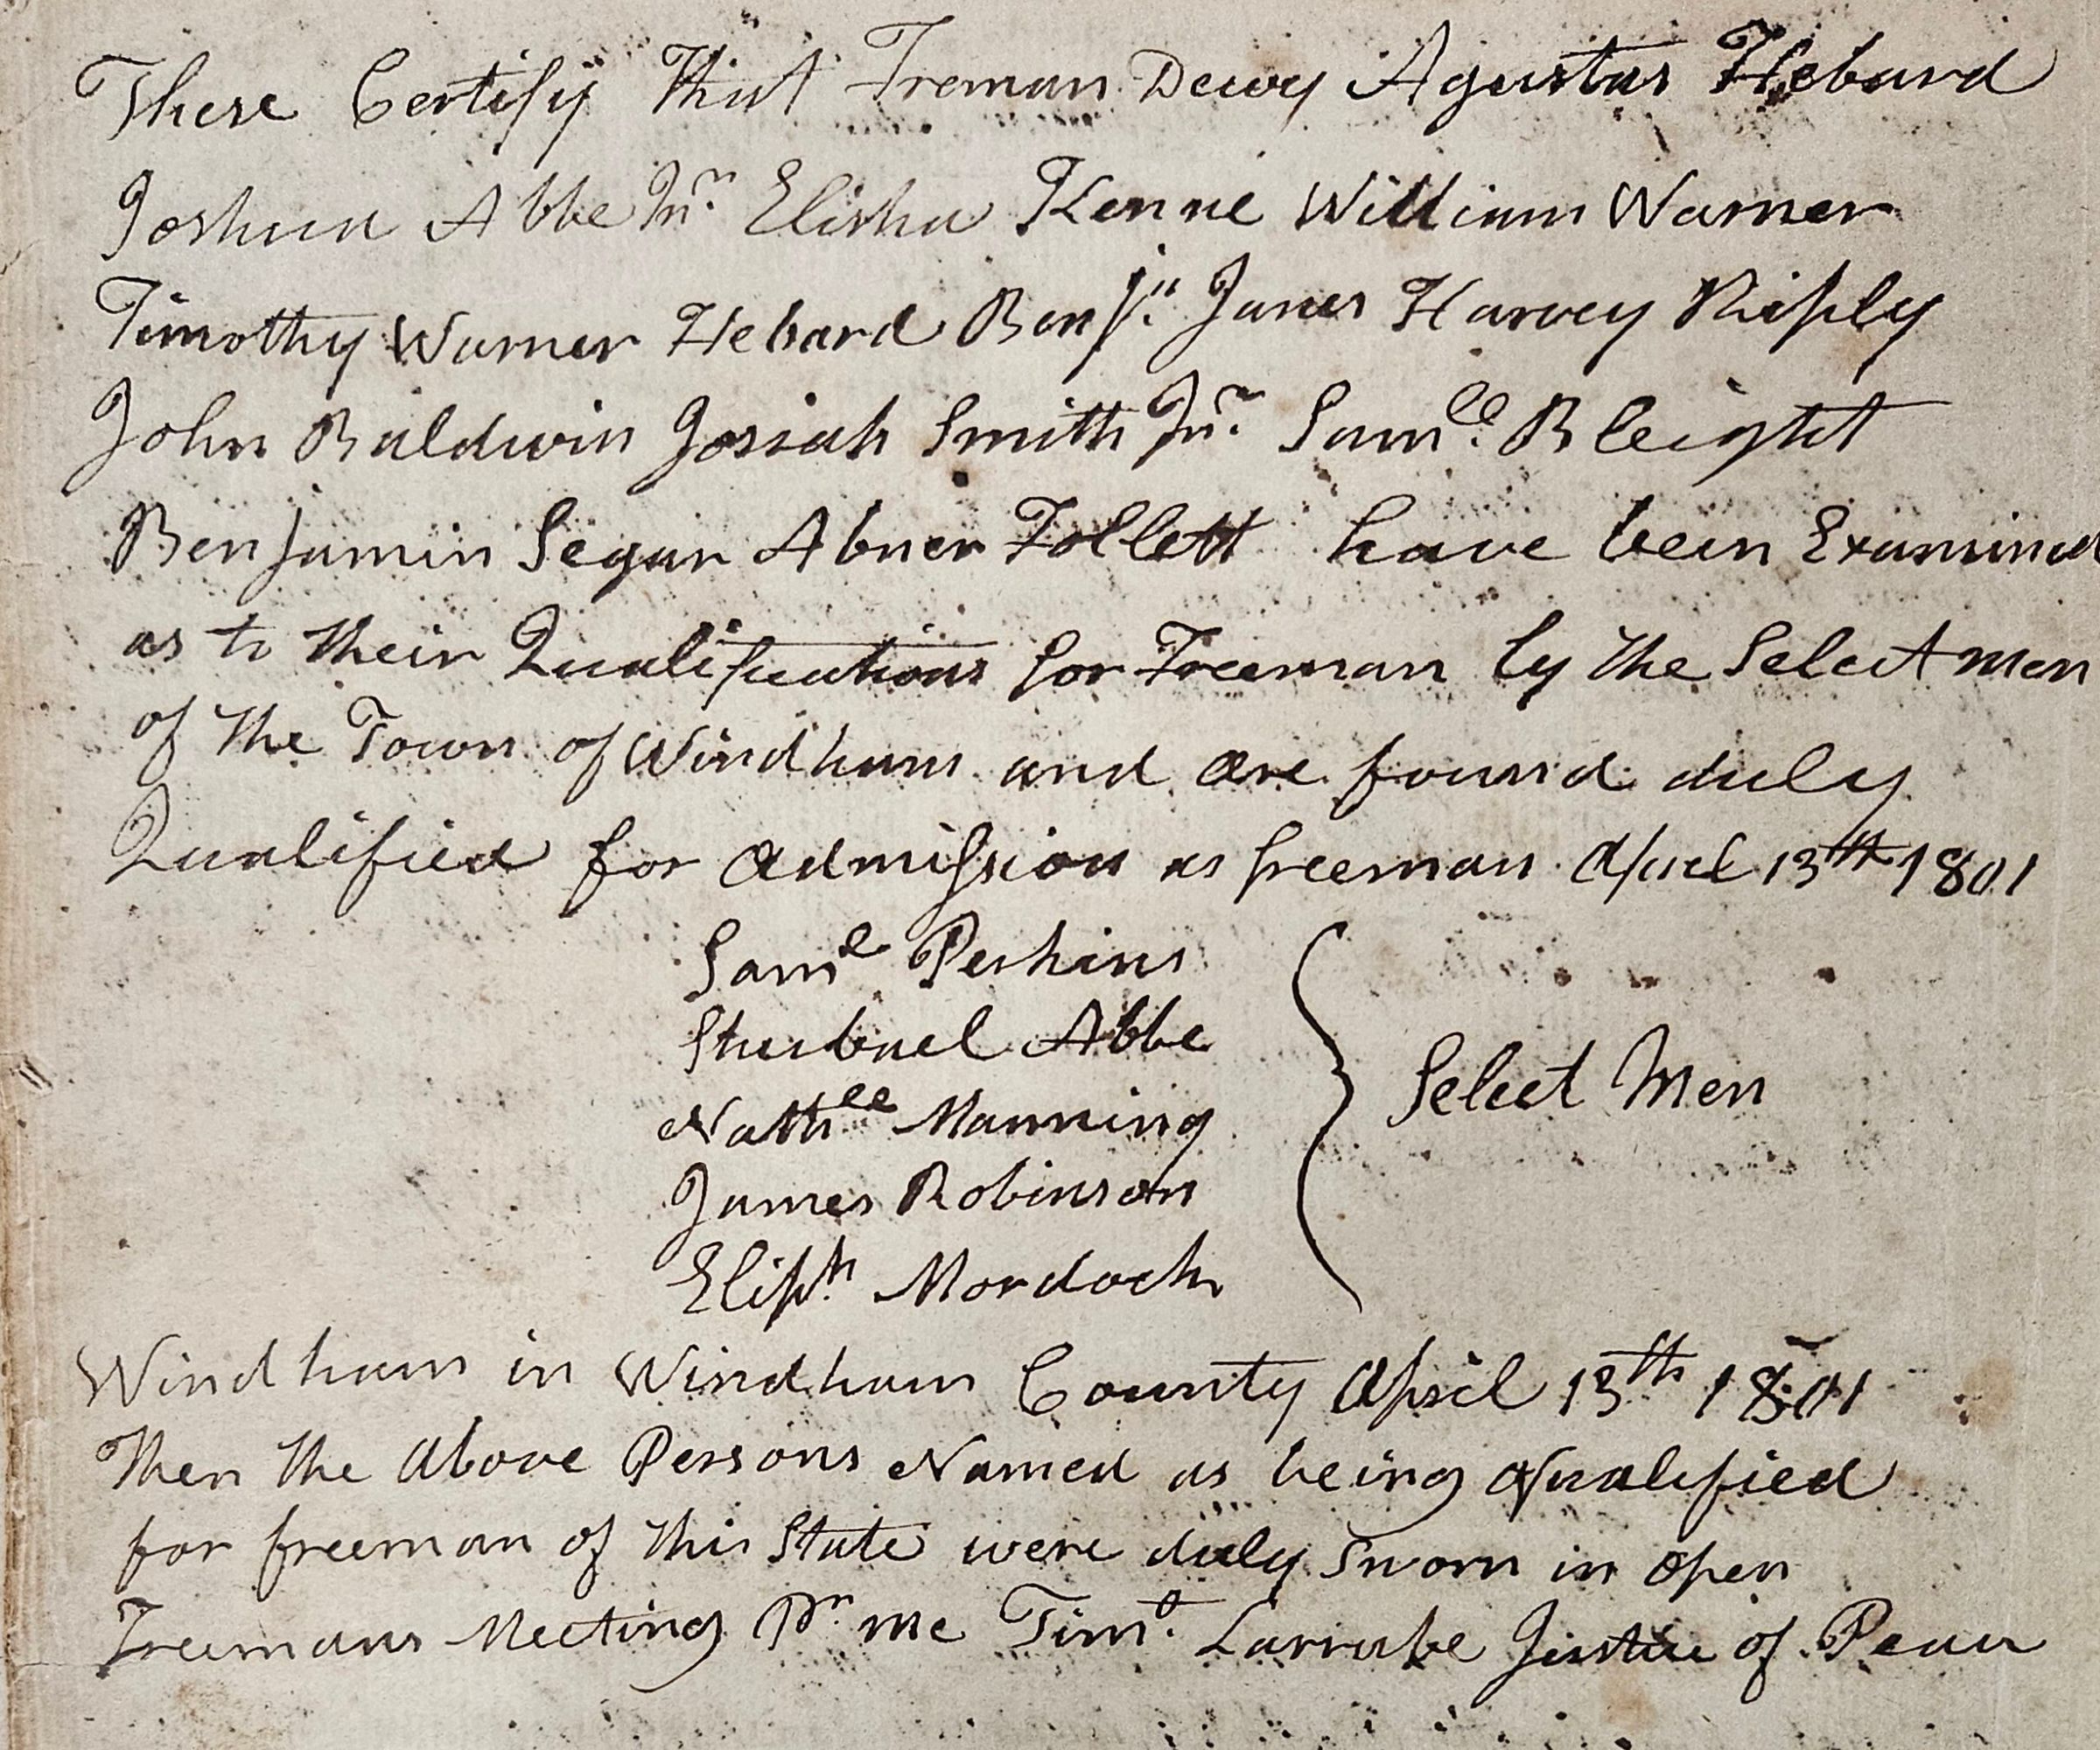 These Certify that Freman Dewy Agustus Hebard
Joshua Abbe Jnr. Elisha Kenne William Warner
Timothy Warner Hebard Benja. Janes Harvey Riply
John Baldwin Josiah Smith Jnr. Samll. Bleight
Benjamin Segar Abner Follett have been Examined
as to their Qualifications for Freeman by the Select men
of the Town of Windham and are found duly
Qualified for admission as freeman April 13th 1801
Saml Perkins
Shubael Abbe
Nathll Manning
James Robinson
Eliph. Mordock
Select Men
Windham in Windham County April 13th 1801
Then the above Persons Named as being Qualified
for freeman of this State were duly Sworn in open
Freemans Meeting Pr. me Timo. Larrabe Justice of Peace